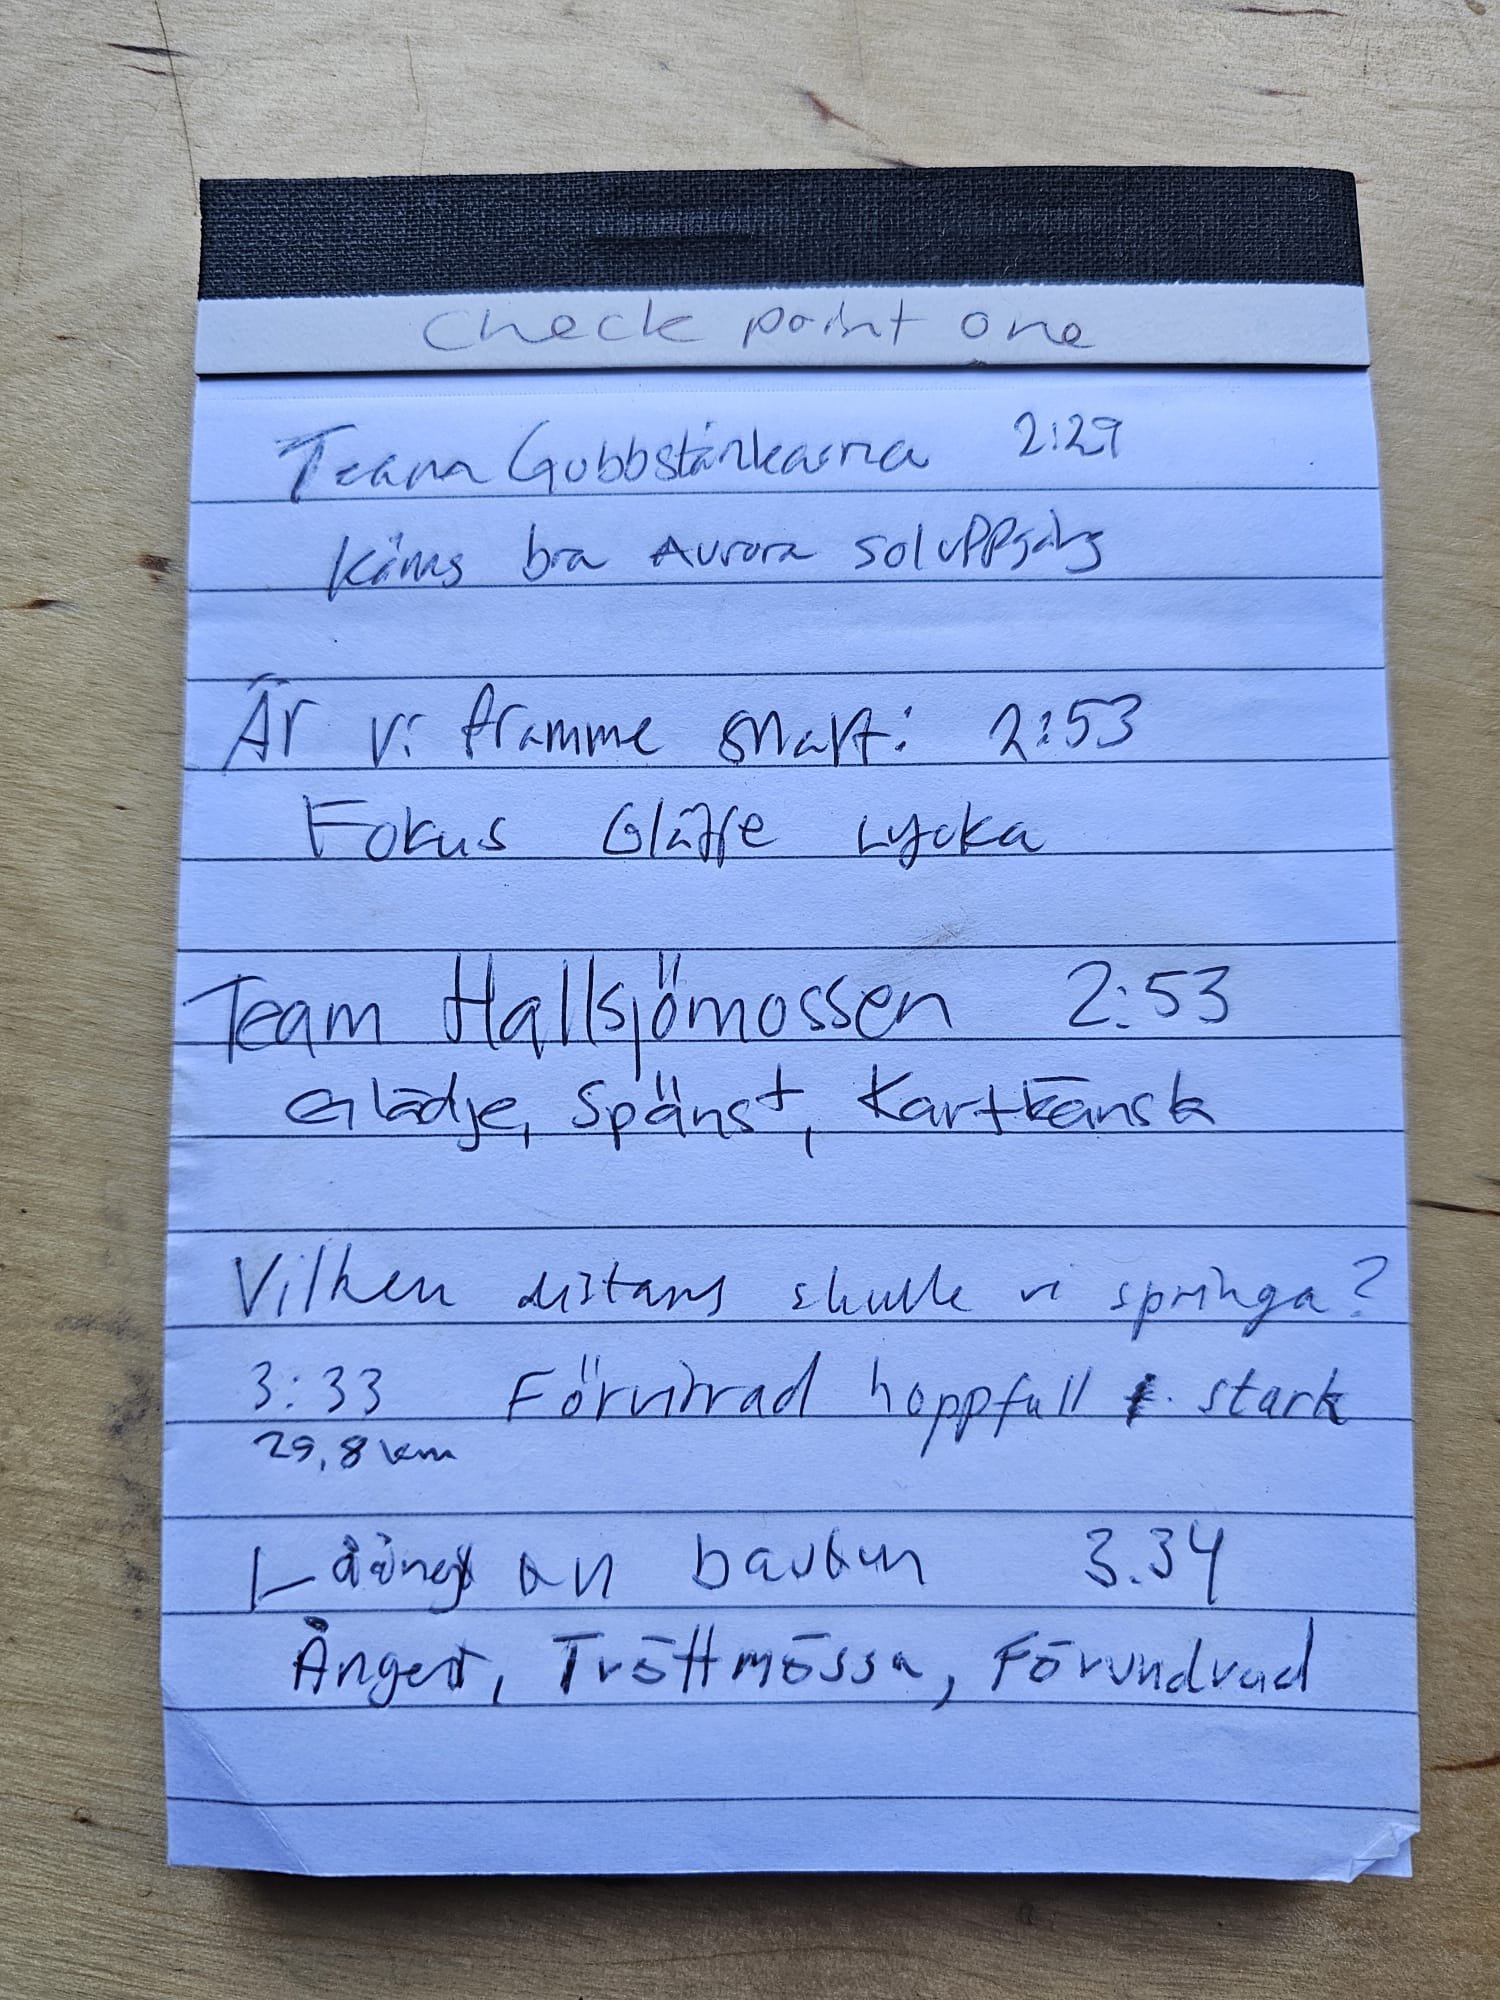 Check point one
Team Gubbstänkarna 2:29
Käns bra Aurora soluppgång
Är vi framme snart: 2:53
Fokus Glädje Lycka
Team Hallsjömossen 2:53
Glädje, Spänst, Kartkänsk
Vilken distans skulle vi springa?
3:33 Förvirrad hoppfull stark
29,8 km
Låångt 3.34
Ångest, Tröttmössa, Förundrad